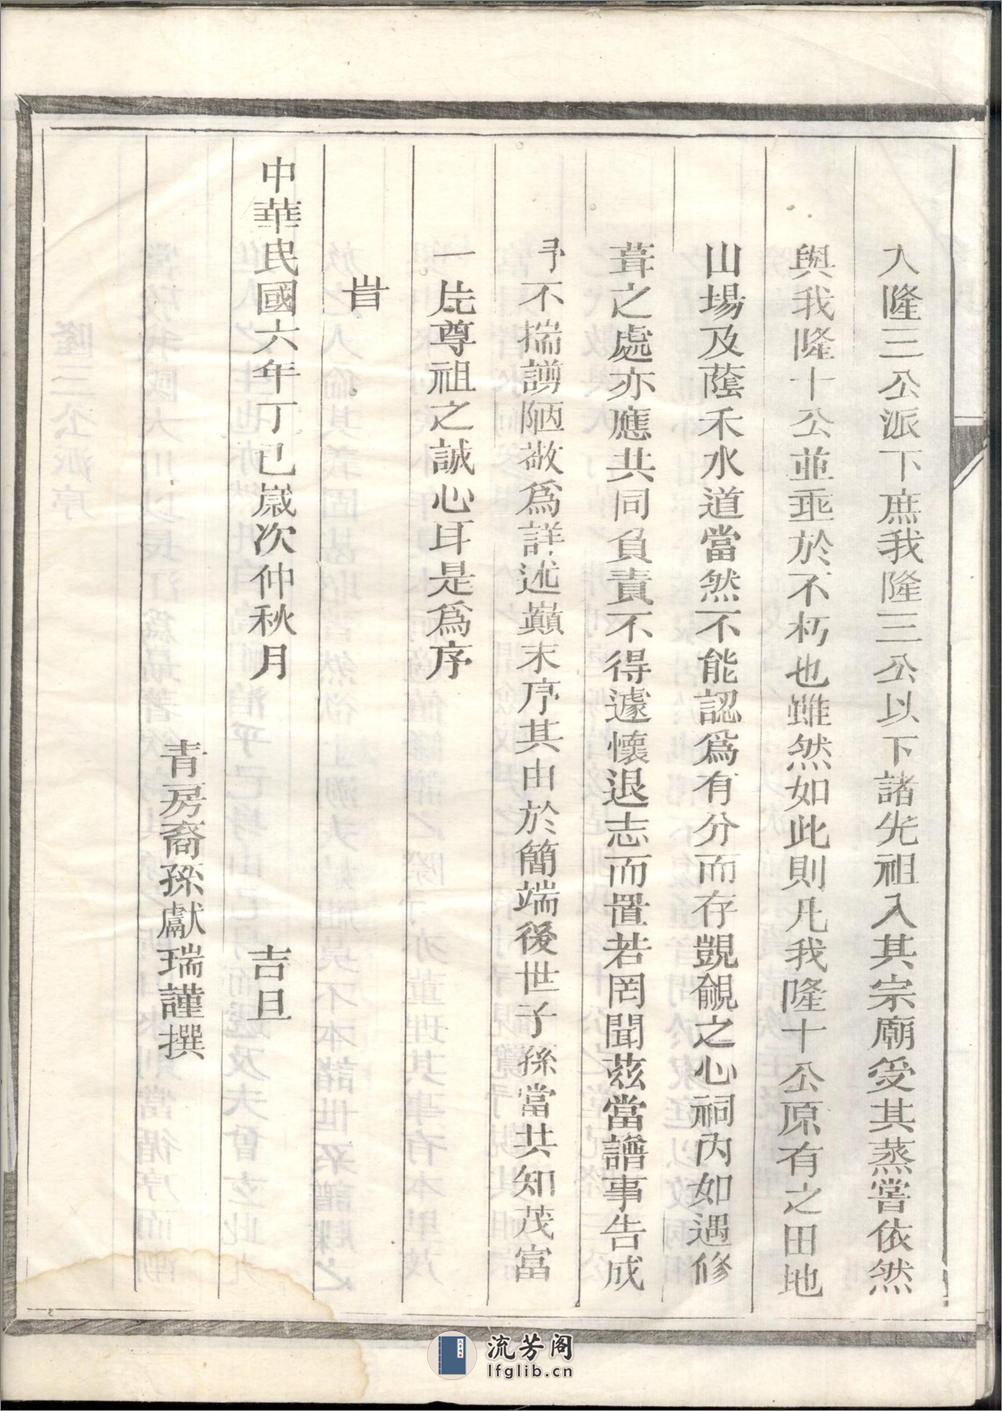 入隆三公派下庶我隆三公以下諸先祖入其宗廟受其蒸嘗依然
與我隆十公並垂於不朽也雖然如此則凡我隆十公原有之田地
山場及蔭禾水道當然不能認爲有分而存覬覦之心祠內如遇修
葺之處亦應共同負責不得遽懷退志而置若罔聞茲當譜事告成
予不揣譾陋敬爲詳述巔末序其由於簡端後世子孫當共知茂富
一底尊祖之誠心耳是爲序
旹
中華民國六年丁巳歲次仲秋月 吉旦
青房裔孫獻瑞謹撰
流芳阁
lfglib.cn